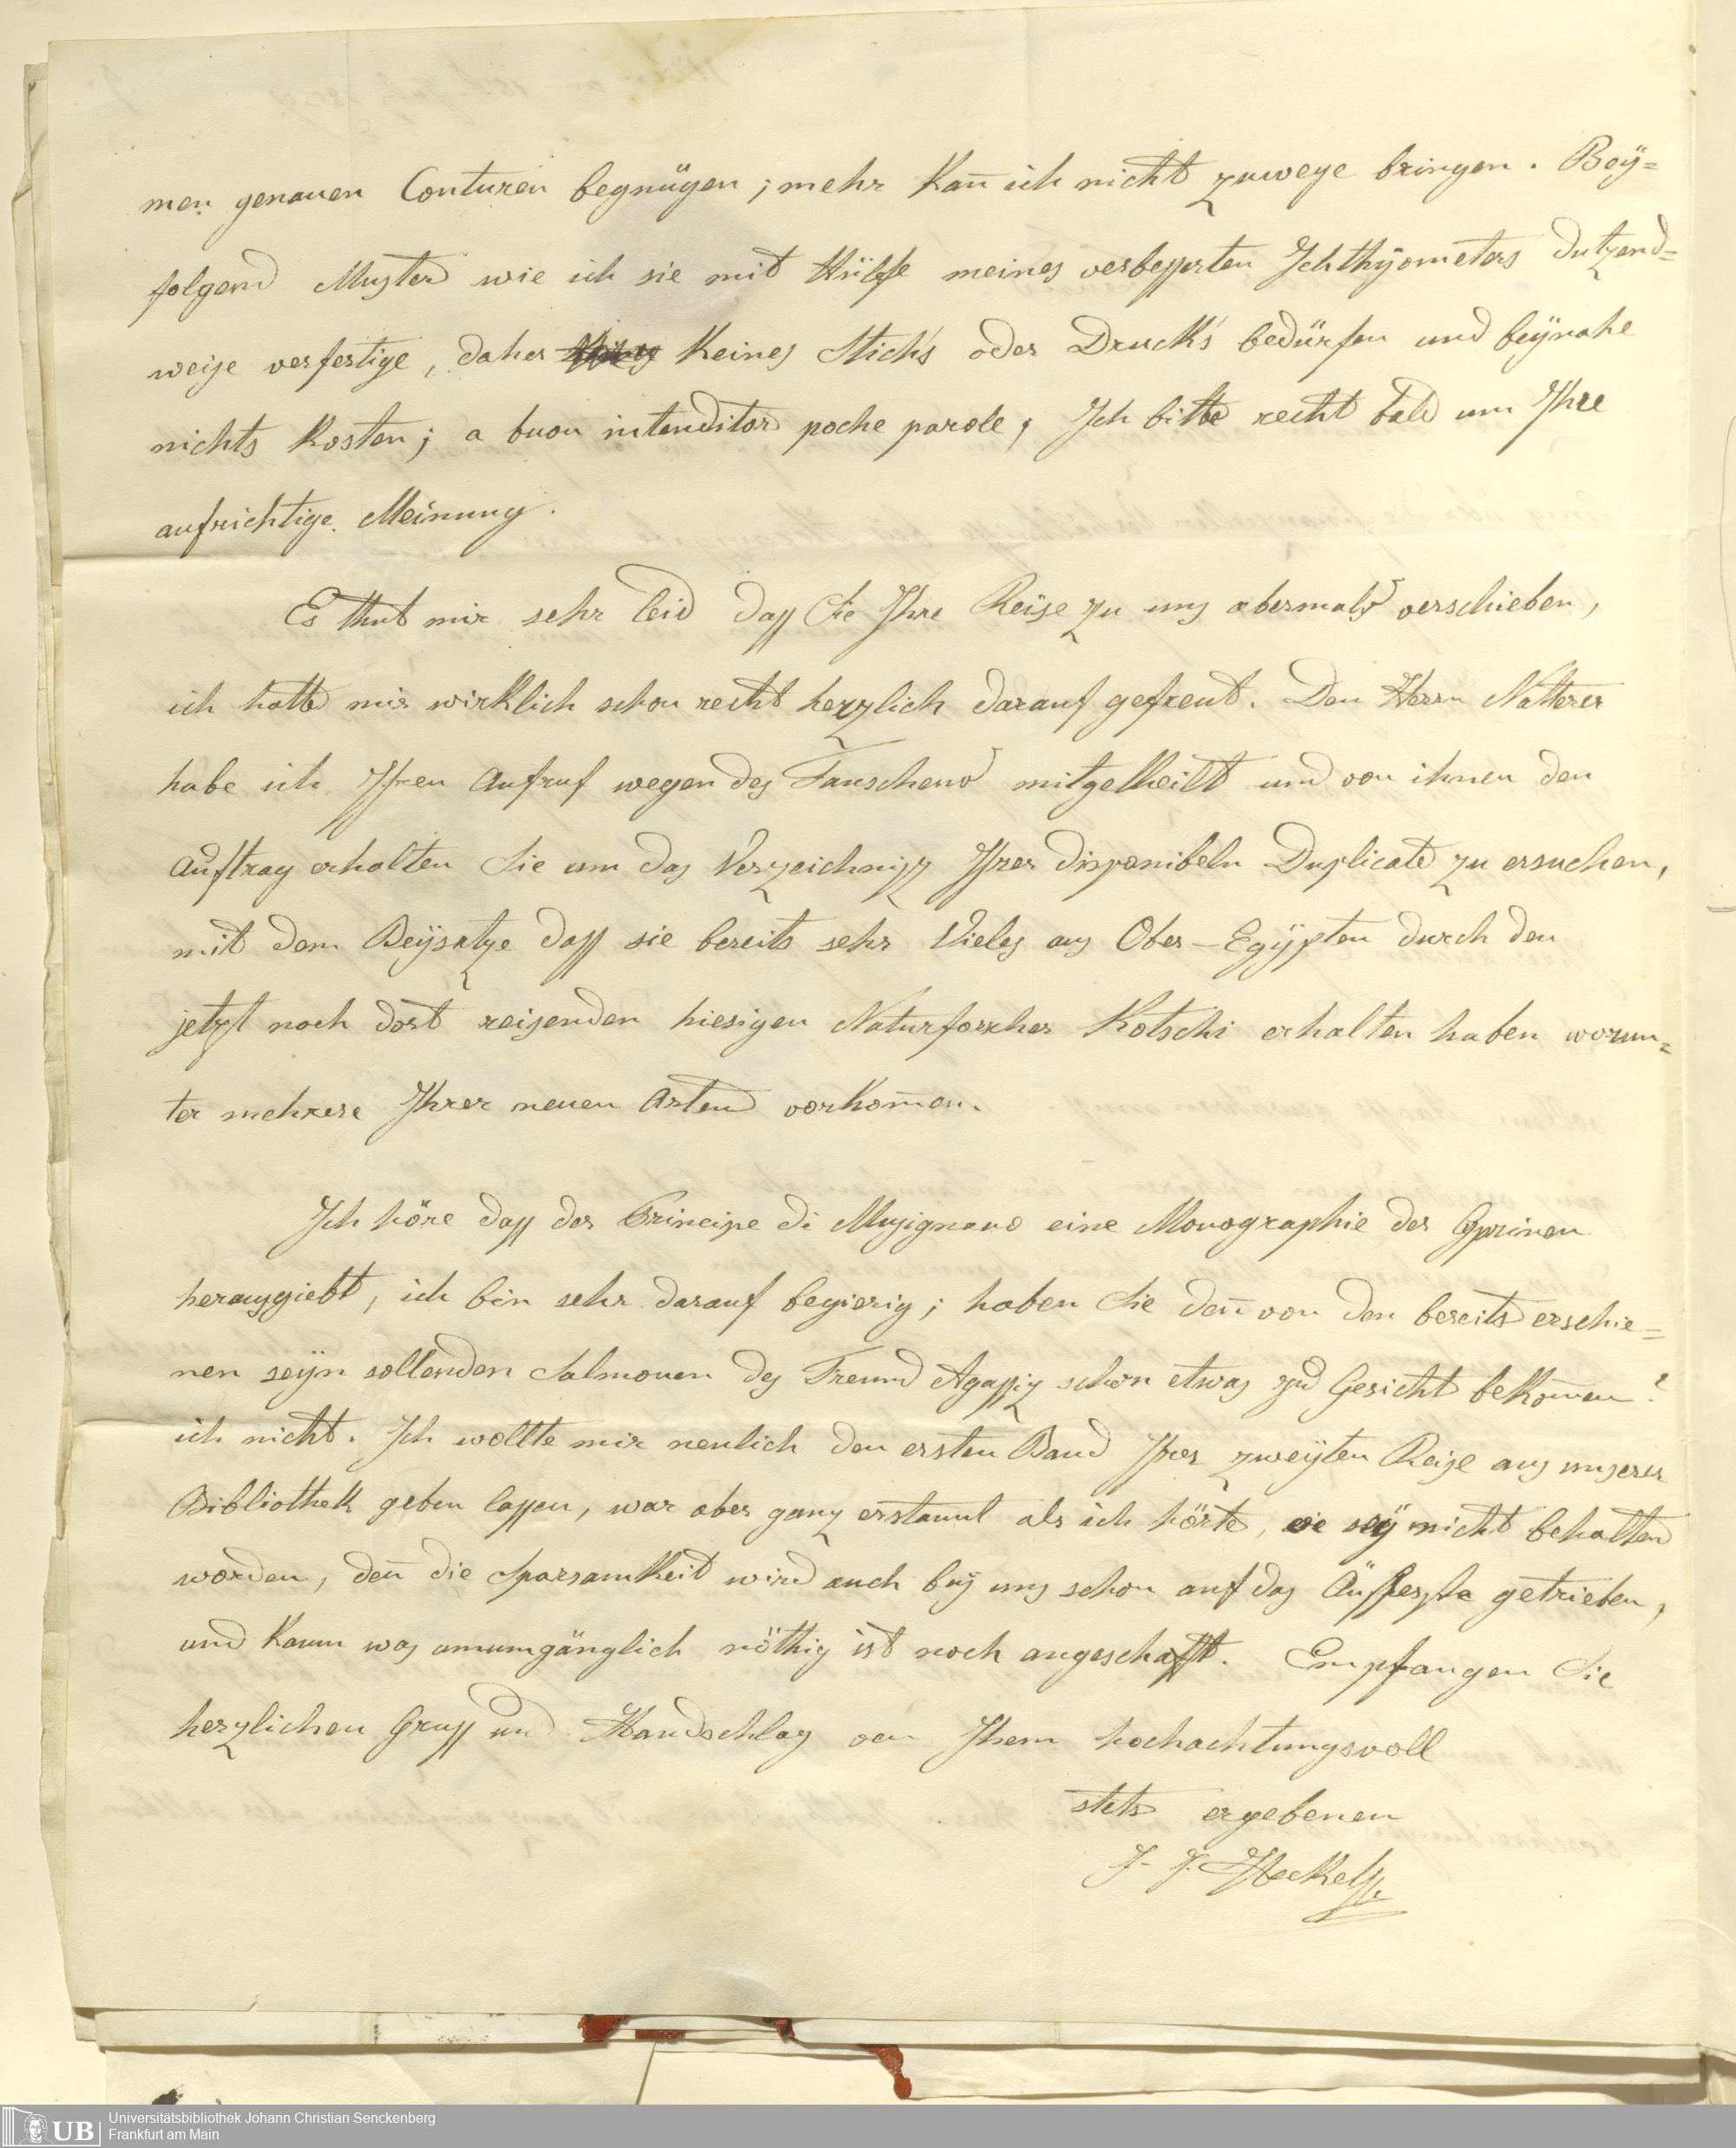 men genauen Conturen begnügen; mehr kan̄ ich nicht zuwege bringen. Beÿ=
folgend Muster wie ich sie mit Hülfe meines verbesserten Ichthÿometers dutzend=
weise verfertige, daher keines Stich's oder Druck's bedürfen und beÿnahe
nichts kosten; a buon intenditor poche parole; Ich bitte recht bald um Ihre
aufrichtige Meinung.
Es thut mir sehr leid dass Sie Ihre Reise zu uns abermals verschieben,
ich hatte mir wirklich schon recht herzlich darauf gefreut. Den Herrn Natterer
habe ich Ihren Aufruf wegen des Tauschens mitgetheilt und von ihnen den
Auftrag erhalten Sie um das Verzeichniss Ihrer disponibeln Duplicate zu ersuchen,
mit dem Beÿsatze dass sie bereits sehr Vieles aus Ober-Egÿpten durch den
jetzt noch dort reisenden hiesigen Naturforscher Kotschi erhalten haben worun=
ter mehrere Ihrer neuen Arten vorkom̄en.
Ich höre dass der Principe di Musignano eine Monographie der Cyprinen
herausgiebt, ich bin sehr darauf begierig; haben Sie den̄ von den bereits erschie=
nen seÿn sollenden Salmonen des Freund Agassiz schon etwas zu Gesicht bekom̄en?
ich nicht. Ich wollte mir neulich den ersten Band Ihrer zweÿten Reise aus unserer
Bibliothek geben lassen, war aber ganz erstaunt als ich hörte, sie seÿ nicht behalten
worden, den̄ die Sparsamkeit wird auch beÿ uns schon auf das Äusserste getrieben,
und kaum was unumgänglich nöthig ist noch angeschafft. Empfangen Sie
herzlichen Gruss und Handschlag von Ihrem hochachtungsvoll
stets ergebenen
J. J. Heckel
UB
Universitätsbibliothek Johann Christian Senckenberg
Frankfurt am Main